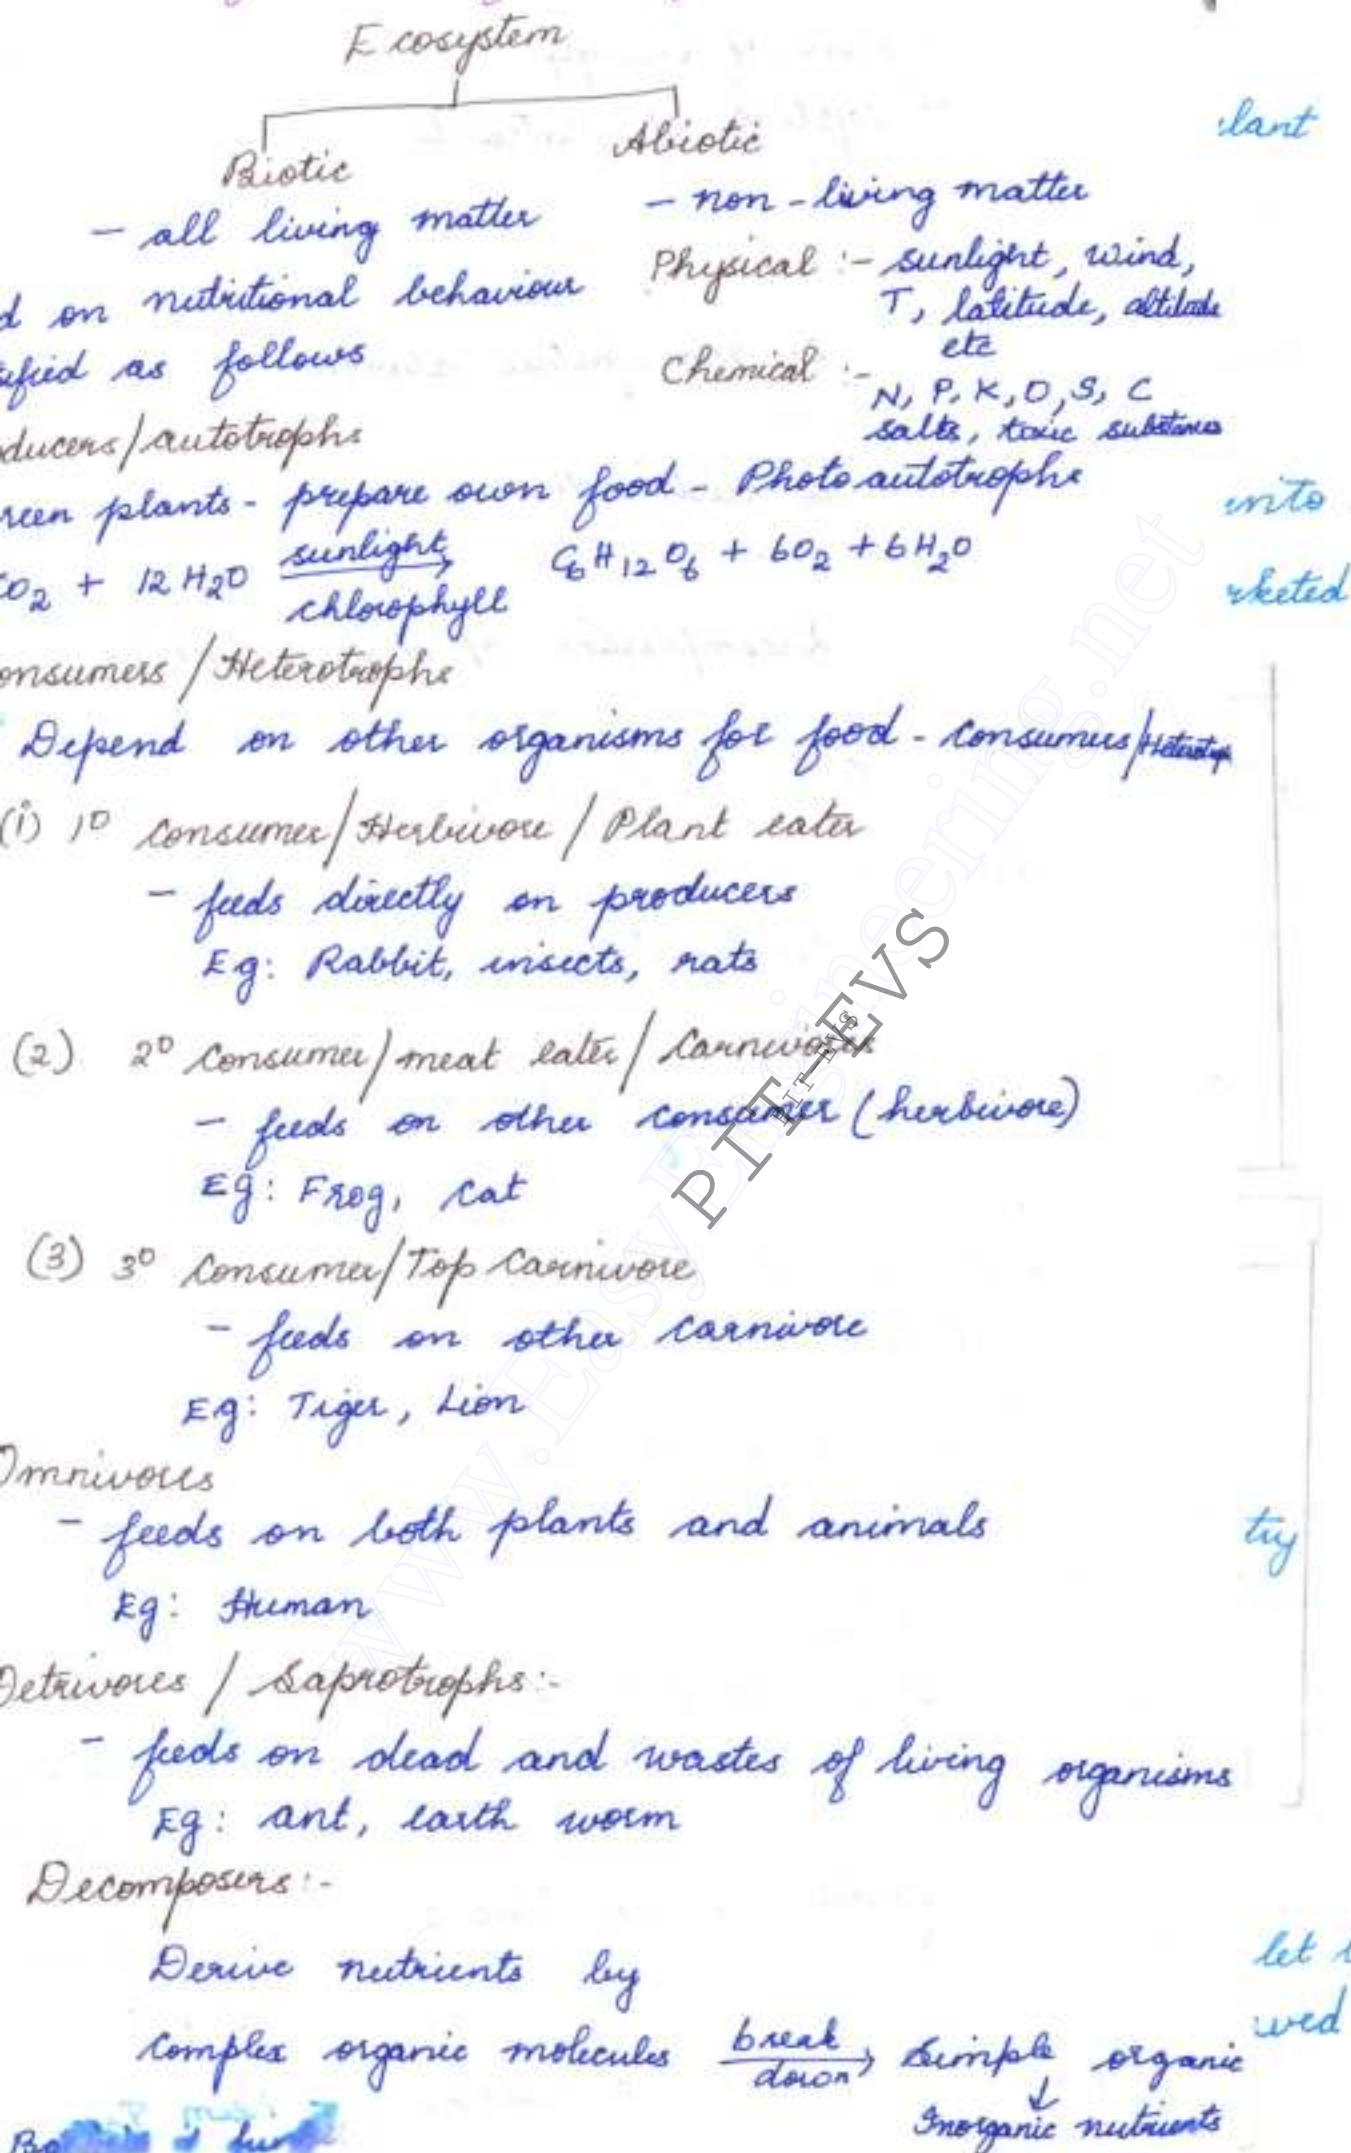 Ecosystem
Biotic
Abiotic
- all living matter
- non-living matter
Physical :- sunlight, wind,
T, latitude, altitude
etc
d on nutritional behaviour
sified as follows
Chemical :-
N, P, K, O, S, C
salts, toxic substances
ducers/autotrophs
reen plants - prepare own food - Photo autotrophs
CO2 + 12 H2O sunlight C6H12O6 + 6O2 + 6H2O
chlorophyll
onsumers / Heterotrophs
Depend on other organisms for food - Consumers/
(i) 1° Consumer/Herbivore / Plant eater
- feeds directly on producers
Eg: Rabbit, insects, rats
(2) 2° Consumer/meat eater/
- feeds on other consumer (herbivore)
Eg: Frog, cat
(3) 3° Consumer/Top Carnivore
- feeds on other carnivore
Eg: Tiger, Lion
Omnivores
- feeds on both plants and animals
Eg: Human
Detrivores / Saprotrophs:-
- feeds on dead and wastes of living organisms
Eg: ant, earth worm
Decomposers:-
Derive nutrients by
Complex organic molecules break down Simple organic
Inorganic nutrients
lant
into
rketed
try
let
wed
www.EasyEngineering.net
PIT-EVS